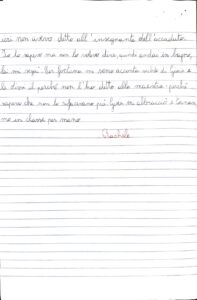 ieri non avevo detto all'insegnante dell'accaduto.
Io lo sapevo ma non lo volevo dire, quando andai in bagno,
lei mi seguì. Per fortuna mi sono accorta subito di
le dissi il perché non l'ho detto alla maestra: perché
sapevo che non lo rifacevano più. ci abbracciò e torna
mo in classe per mano.
Rachele